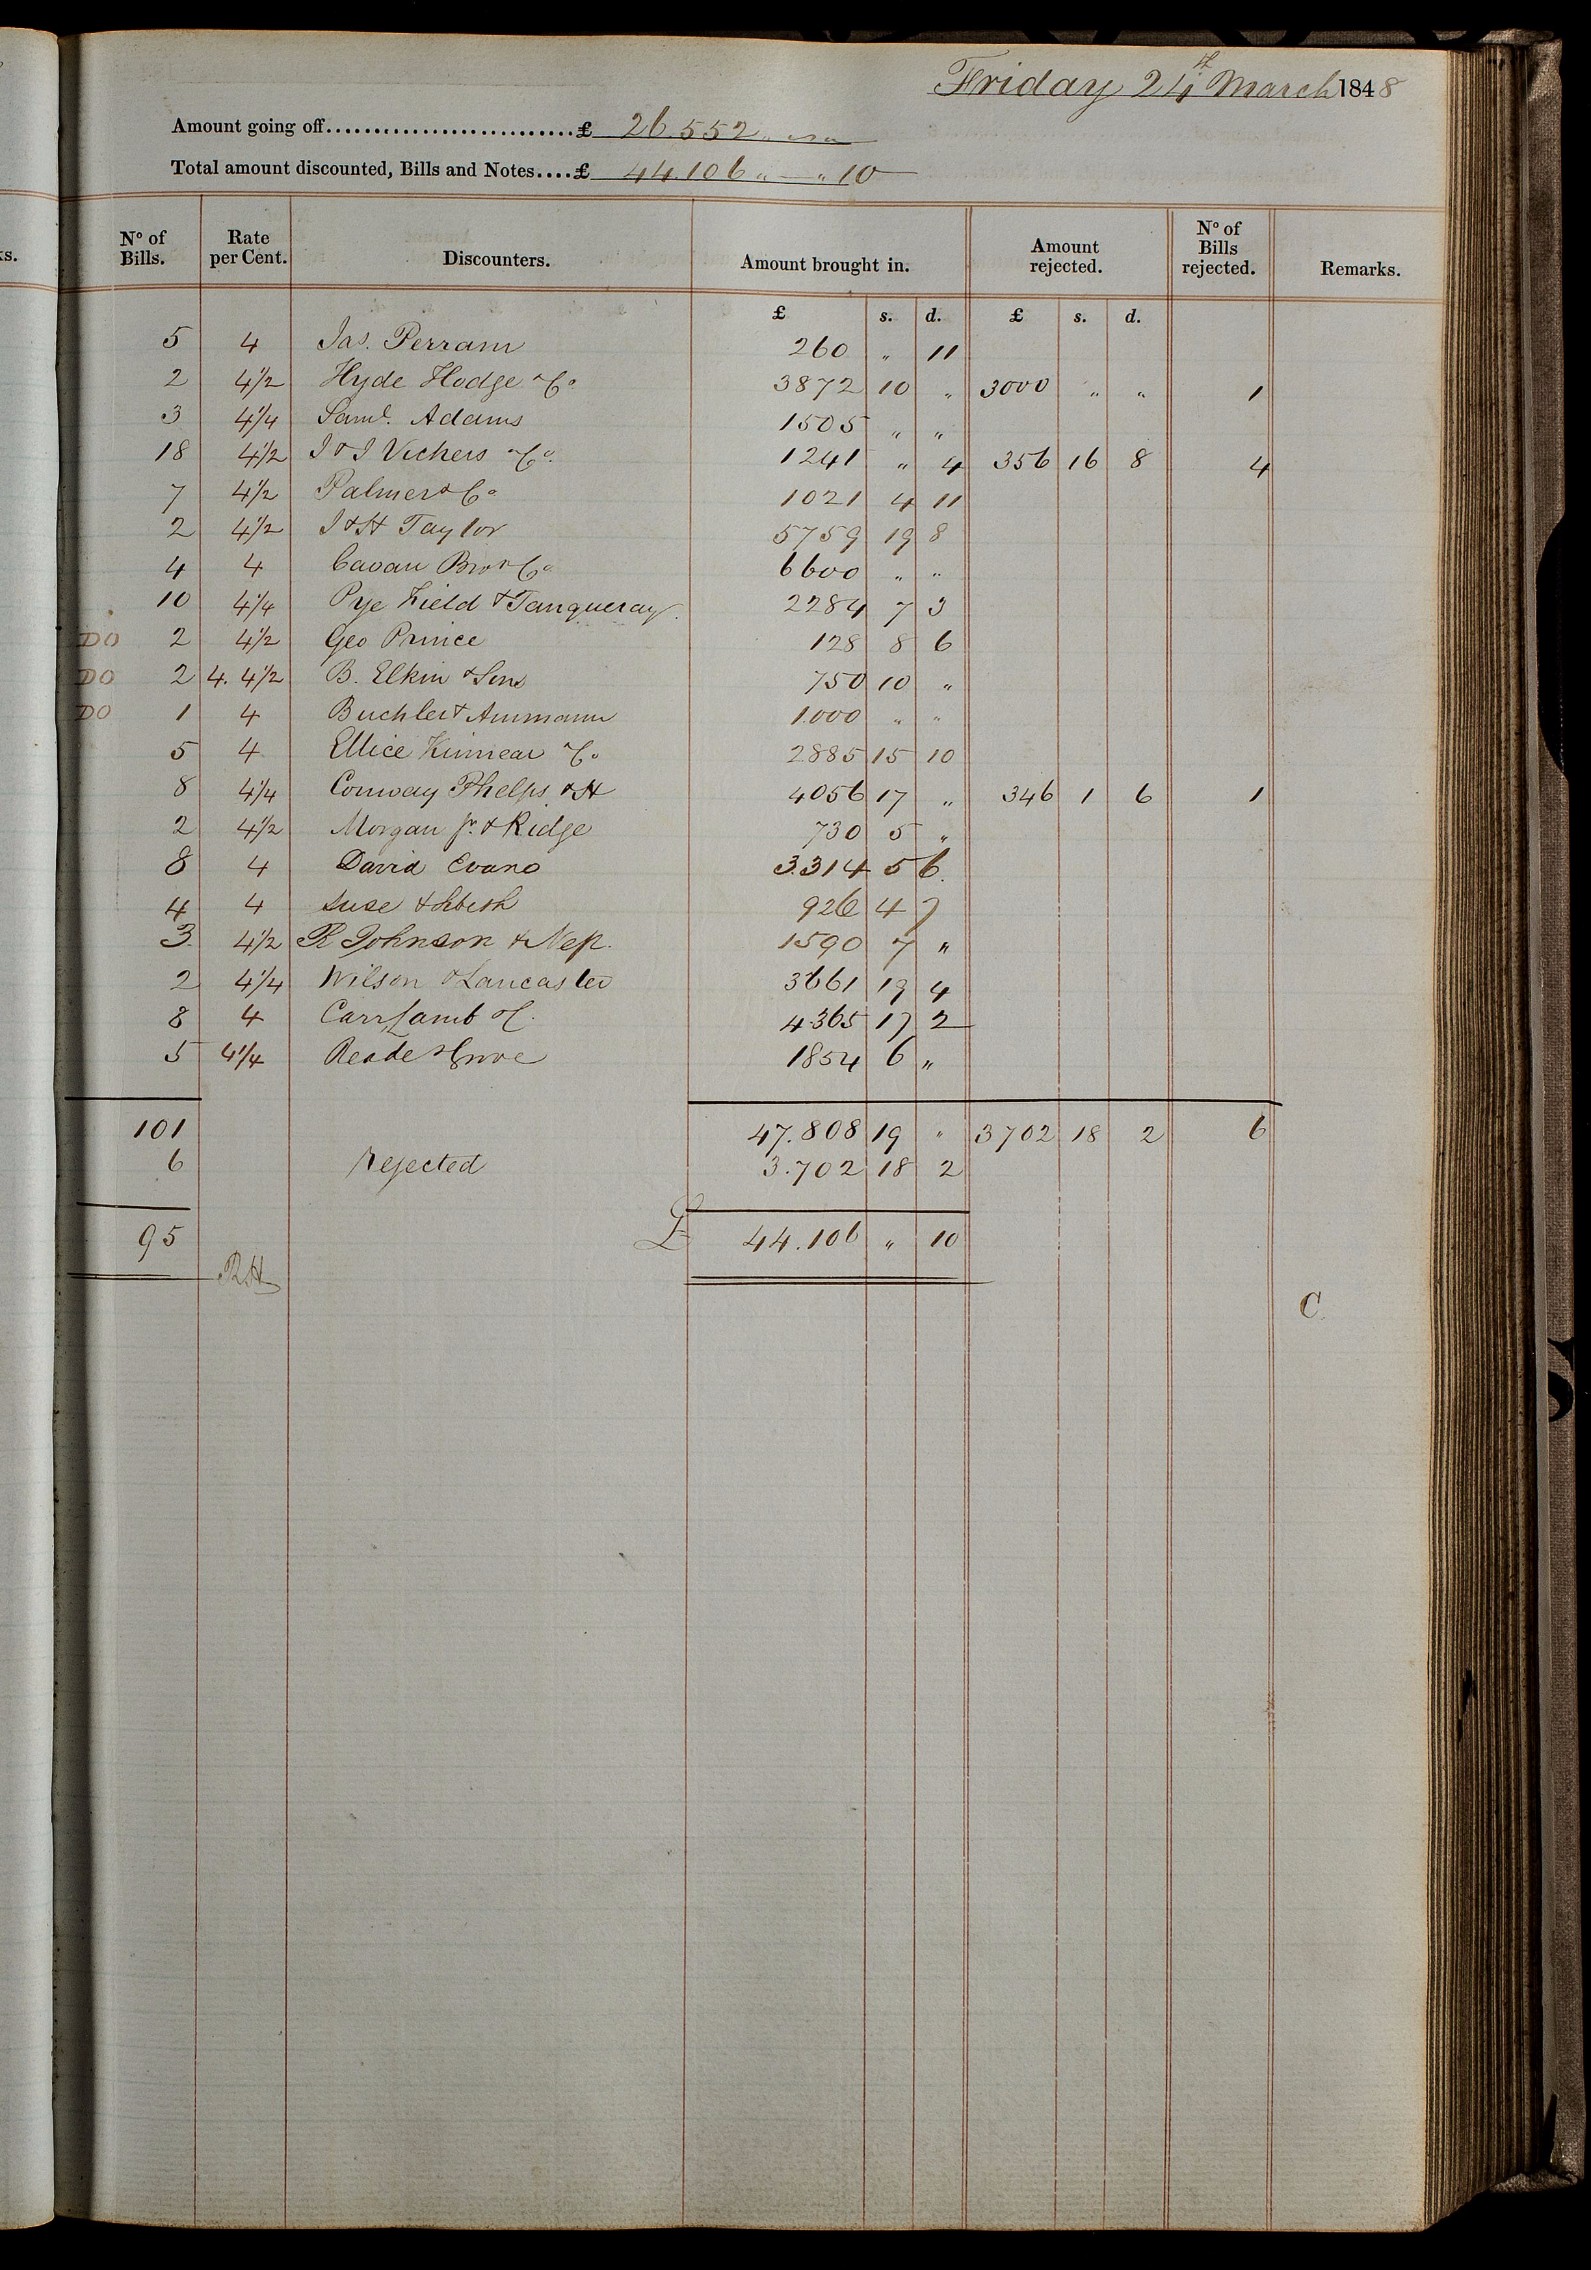 Friday 24th March 1848
Amount going off...........................£ 26.552 " "
Total amount discounted, Bills and Notes....£ 44.106 " — " 10
s.
No of Bills. Rate per Cent. Discounters. Amount brought in. Amount rejected. No of Bills rejected. Remarks.
£ s. d. £ s. d.
5 4 Jas. Perram 260 " 11
2 4 1/2 Hyde Hodge & Co 3872 10 " 3000 " " 1
3 4 1/4 Saml. Adams 1505 " "
18 4 1/2 J & J Vickers & Co. 1241 " 4 356 16 8 4
7 4 1/2 Palmer & Co 1021 4 11
2 4 1/2 J & H Taylor 5759 19 8
4 4 Cavan Bros & Co 6600 " "
10 4 1/4 Pye Field & Tanqueray 2284 7 3
DO 2 4 1/2 Geo Prince 128 8 6
DO 2 4. 4 1/2 B. Elkin & Sons 750 10 "
DO 1 4 Buchler & Ammann 1.000 " "
5 4 Ellice Kinnear & Co 2885 15 10
8 4 1/4 Conway Phelps & H 4056 17 " 346 1 6 1
2 4 1/2 Morgan Jr. & Ridge 730 5 "
8 4 David Evans 3.314 5 6
4 4 Suse & Sibeth 926 4 7
3 4 1/2 R Johnson & Nep. 1590 7 "
2 4 1/4 Wilson & Lancaster 3661 19 4
8 4 Carr Lamb & C. 4365 17 2
5 4 1/4 Reade 1854 6 "
101 47.808 19 " 3702 18 2 6
6 Rejected 3.702 18 2
95 £ 44.106 " 10
RH
C